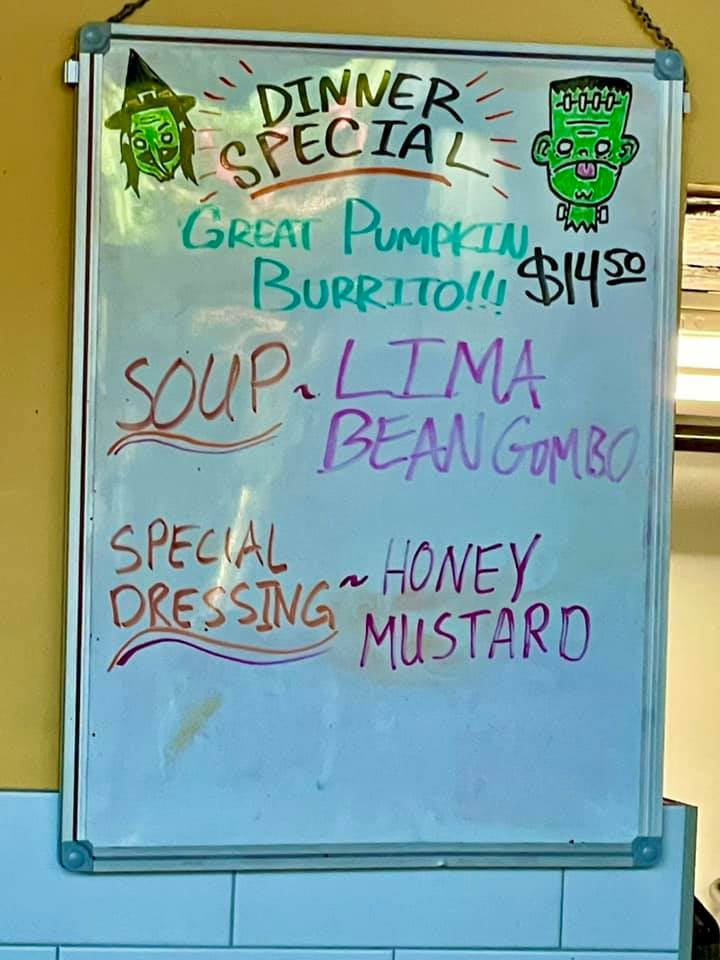 DINNER
SPECIAL
GREAT PUMPKIN
BURRITO!!! $14.50
SOUP ~ LIMA
BEAN GOMBO
SPECIAL
DRESSING ~ HONEY
MUSTARD